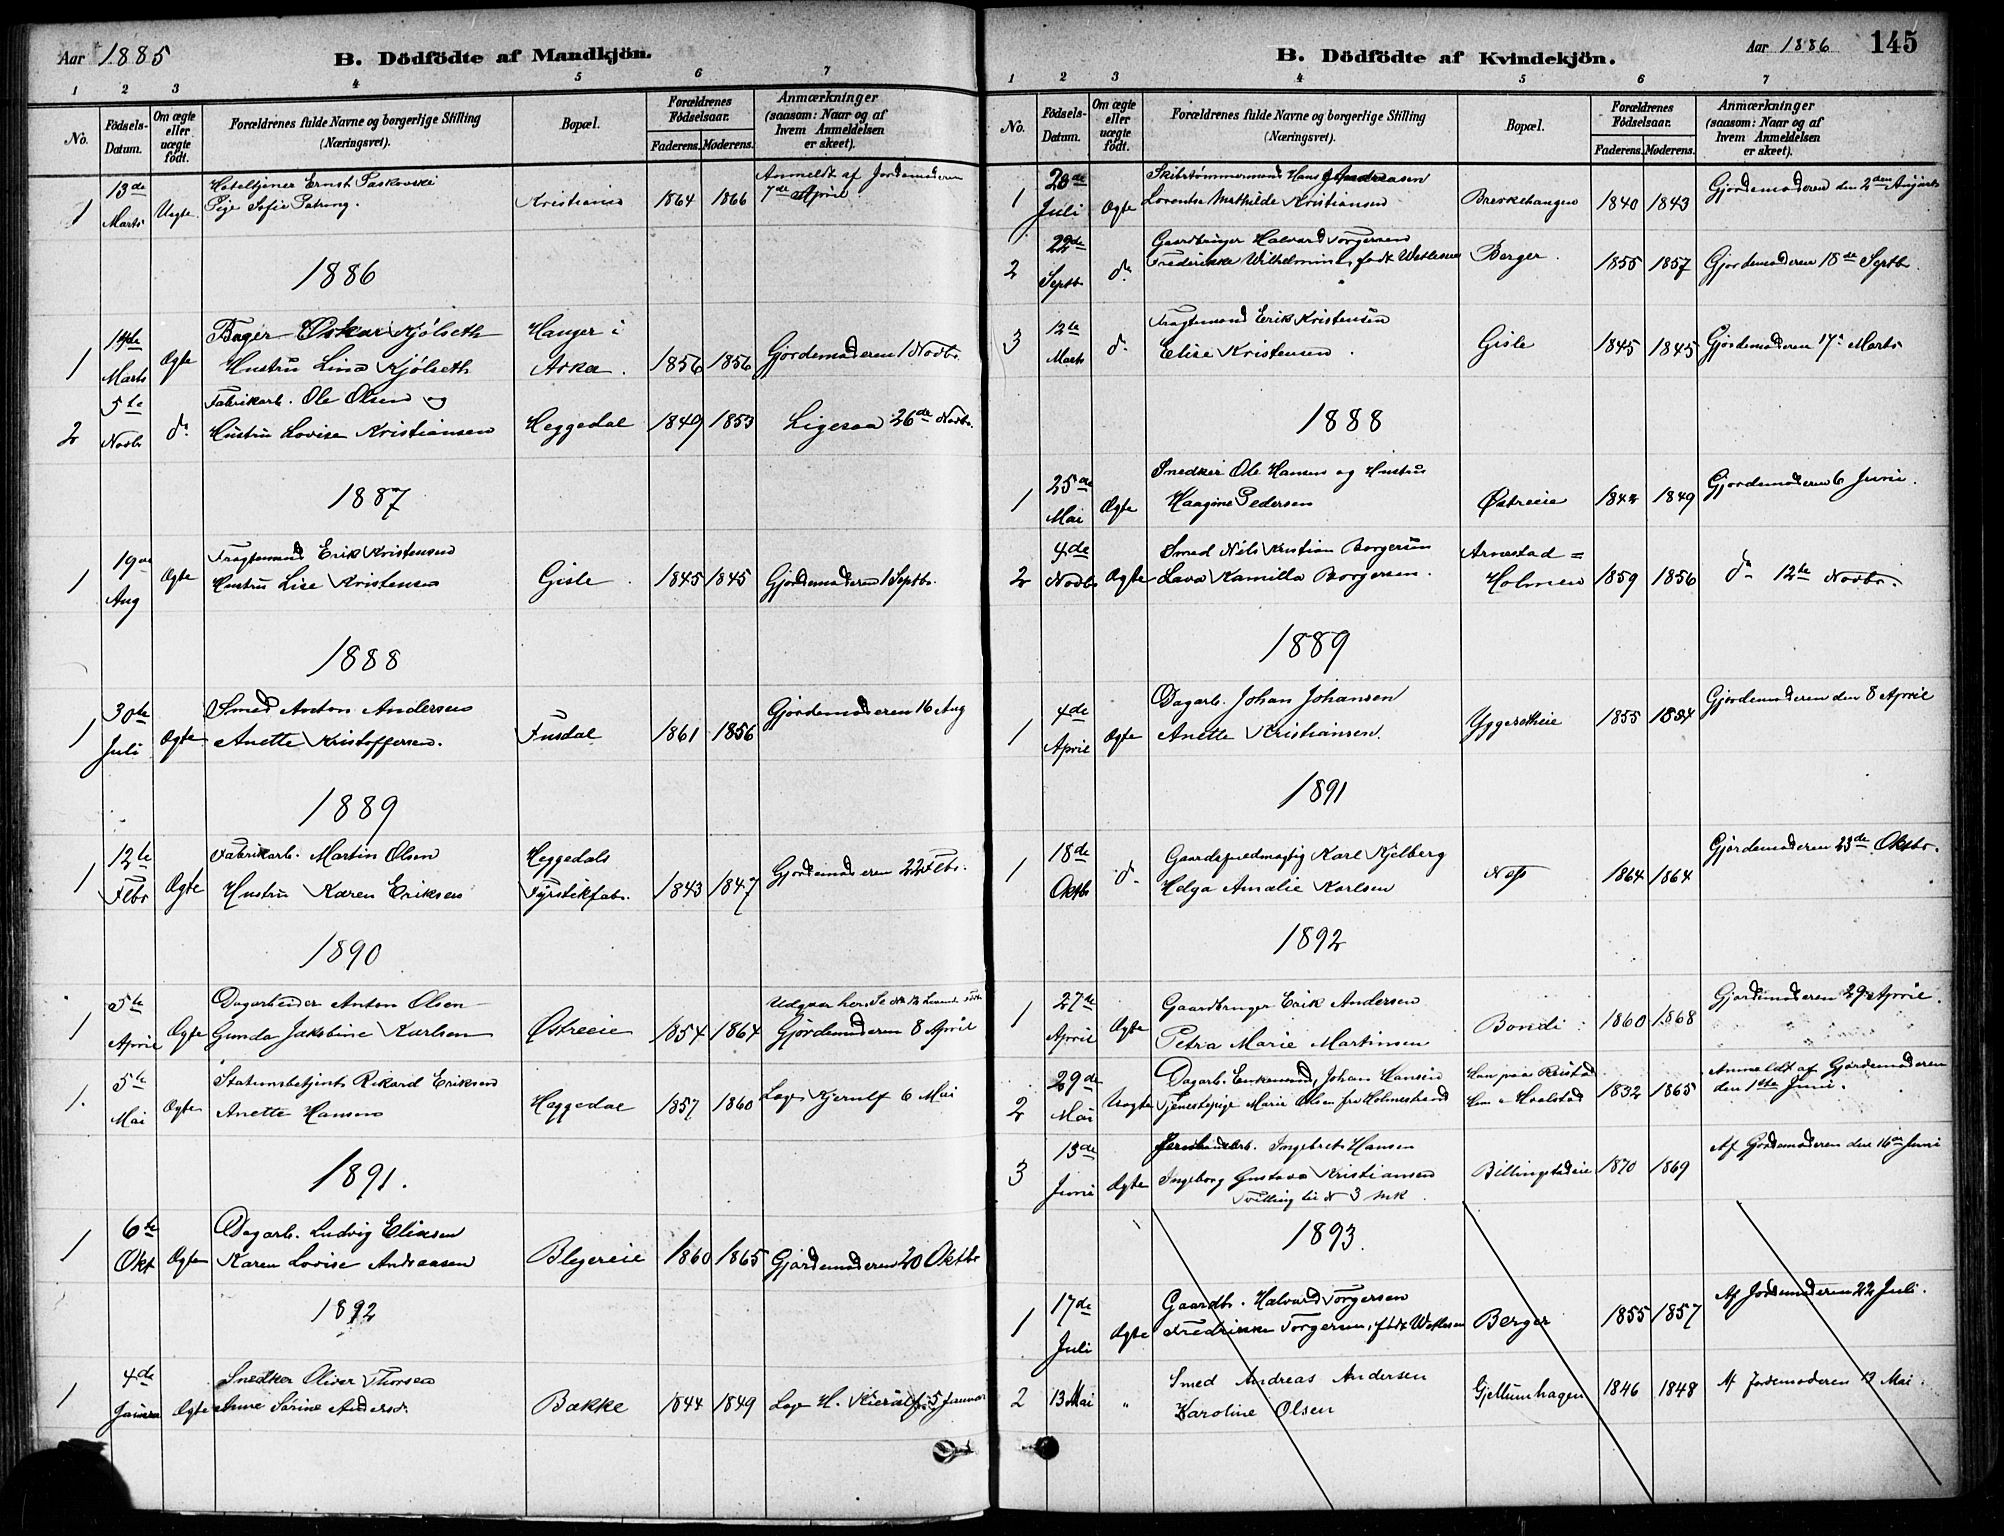 Aar 1885
B. Dödfödte af Mandkjön.
1 2 3 4 5 6 7
No. Födsels-Datum. Om ægte eller uægte födt. Forældrenes fulde Navne og borgerlige Stilling (Næringsvei). Bopæl. Forældrenes Födselsaar. Faderens. Moderens. Anmærkninger (saasom: Naar og af hvem Anmeldelsen er skeet).
13de Hoteltjener Ernst Paskovski Anmeldt af Jordemoderen
1 Marts Uægte Pige Sofie Kristiania 1864 1866 7de April
1886
14de Bager Oskar Kjølseth Hanger i
1 Marts Ægte Hustru Lina Kjølseth Asker. 1856 1856 Gjordemoderen 1 Novbr.
5te Fabrikarb. Ole Olsen og
2 Novbr d. Hustru Lovise Kristiansen Heggedal 1849 1853 Ligesaa 26de Novbr.
1887
19de Fragtemand Erik Kristensen
1 Aug Ægte Hustru Lise Kristensen Gisle 1845 1845 Gjordemoderen 1 Septbr.
1888
30te Smed Anton Andersen Gjordemoderen 16 Aug
1 Juli Ægte Anette Kristoffersen. Fusdal 1861 1856
1889
12te Fabrikarb. Martin Olsen Heggedals
1 Febr Ægte Hustru Karen Eriksen Fyrstikfabr. 1843 1847 Gjordemoderen 22 Febr.
1890
5te Dagarbeider Anton Olsen Udgaar her. Se
1 April Ægte Gunda Jakobine Karlsen Østreeie 1854 1864 Gjordemoderen 8 April
5te Stationsbetjent Rikard Eriksen
1. Mai Ægte Anette Hansen Heggedal 1857 1860 Læge Kjerulf 6 Mai
1891.
6te Dagarb. Ludvig Eliasen
1 Okt Ægte Karen Lovise Andreasen Blegereie 1860 1865 Gjordemoderen 20 Oktbr
1892
4de Snedker Oliver Thorsen
1 Januar Ægte Anne Sørine Andersdr. Bakke 1844 1849 Læge H. Kierulf 5 Januar
Aar 1886 145
B. Dödfödte af Kvindekjön.
1 2 3 4 5 6 7
No. Födsels-Datum. Om ægte eller uægte födt. Forældrenes fulde Navne og borgerlige Stilling (Næringsvei). Bopæl. Forældrenes Födselsaar. Faderens. Moderens. Anmærkninger (saasom: Naar og af hvem Anmeldelsen er skeet).
20de Skibstømmermand Hans Andreasen
1 Juli Ægte Lorentse Mathilde Kristiansen 1840 1843 Gjordemoderen den 2den August
22de Gaardbruger Halvard Torgersen
2 Septb d. Frederikke Wilhelmine, født Wetlesen Berger. 1855 1857 Gjordemoderen 15de Septbr.
12te Fragtemand Erik Kristensen
3 Marts d. Elise Kristensen. Gisle 1845 1845 Gjordemoderen 17. Marts
1888
25de Snedker Ole Hansen og Hustru Gjordemoderen 6 Juni.
1 Mai Ægte Haagine Pedersen Østreeie 1849
4de Smed Nils Kristian Borgersen Arnestad =
2 Novbr Ægte Lava Kamilla Borgersen. Holmen 1859 1856 d. 12te Novbr.
1889
4de Dagarb. Johan Johansen Gjordemoderen den 8 April
1 April Ægte Anette Kristiansen. Yggeseteie 1855 1854
1891
18de Gaardsfuldmægtig Karl Kjelberg Gjordemoderen 23de Oktbr.
1 Oktb d. Helga Amalie Karlsen Næs 1864 1864
1892
27de Gaardbruger Erik Andersen Gjordemoderen 29 April.
1 April Ægte Petra Marie Martinsen Bondi 1860 1868
29de Dagarb. Enkemand, Johan Hansen Han paa Anmeldt af Gjordemoderen
2 Mai Uægte Tjenestepige Marie Olsen fra Holmestrand Hun Hvalstad 1832 1865 den 1ste Juni.
13de Ingebret Hansen Af Gjordemoderen den 16de Juni
3 Juni Ægte Ingeborg Gustava Kristiansen Billingstadeie 1870 1869
Tvilling til N 3 mk.
1893.
17de Gaardb. Halvard Torgersen Af Jordemoderen 22 Juli.
1 Juli Ægte Fredrikke Torgersen, født Wetlesen Berger 1855 1857
Smed Andreas Andersen
2 13 Mai " Karoline Olsen Gjellumhagen 1846 1848 Af Jordemoderen 19 Mai.